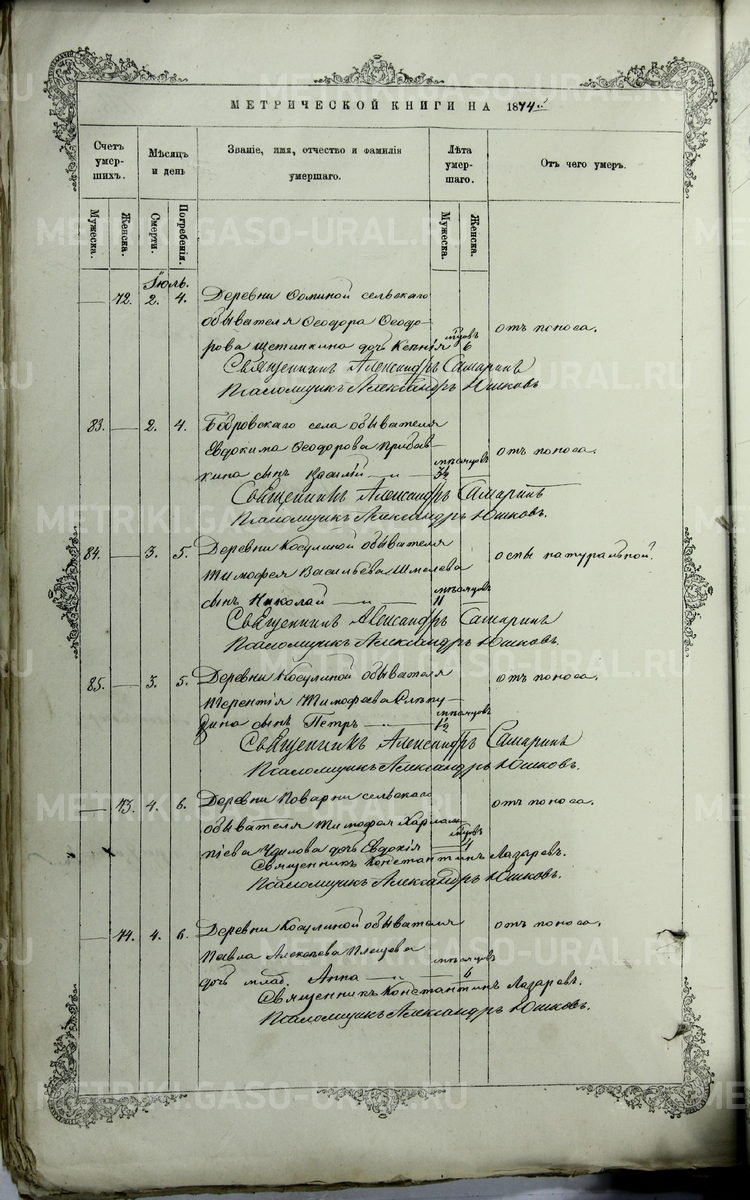 МЕТРИЧЕСКОЙ КНИГИ НА 1874й
Счетъ умерших. Мѣсяцъ и день Званіе, имя, отчество и фамилія умершаго. Лѣта умершаго. Отъ чего умеръ.
Мужеска. Женска. Смерти. Погребенія. Мужеска. Женска.
Іюль.
72. 2. 4. Деревни Ѳоминой сельскаго
обывателя Ѳеодора Ѳеодо-
рова Щетинкина дочь 6 отъ поноса.
Священникъ Александръ Самаринъ
Псаломщикъ Александръ Юшковъ
83. 2. 4. Бобровскаго села обывателя
Евдокима Ѳеодорова
сынъ Василій мѣсяцовъ отъ поноса.
Священникъ Александръ Самаринъ
Псаломщикъ Александръ Юшковъ.
84. 3. 5. Деревни Косулиной обывателя оспы натуральной.
Тимофея Васильева Шмелева
сынъ Николай мѣсяцовъ 11
Священникъ Александръ Самаринъ
Псаломщикъ Александръ Юшковъ.
85. 3. 5. Деревни Косулиной обывателя отъ поноса.
Терентія Тимофеева
сынъ Петръ мѣсяцовъ 1½
Священникъ Александръ Самаринъ
Псаломщикъ Александръ Юшковъ.
73. 4. 6. Деревни Поварни сельскаго отъ поноса.
обывателя Тимофея Харлам-
піева дочь Евдокія 4
Священникъ Константинъ Лазаревъ.
Псаломщикъ Александръ Юшковъ.
74. 4. 6. Деревни Косулиной обывателя отъ поноса.
Павла Алексѣева
дочь млад. Анна мѣсяцовъ 4
Священникъ Константинъ Лазаревъ.
Псаломщикъ Александръ Юшковъ.
METRIKI.GASO-URAL.RU